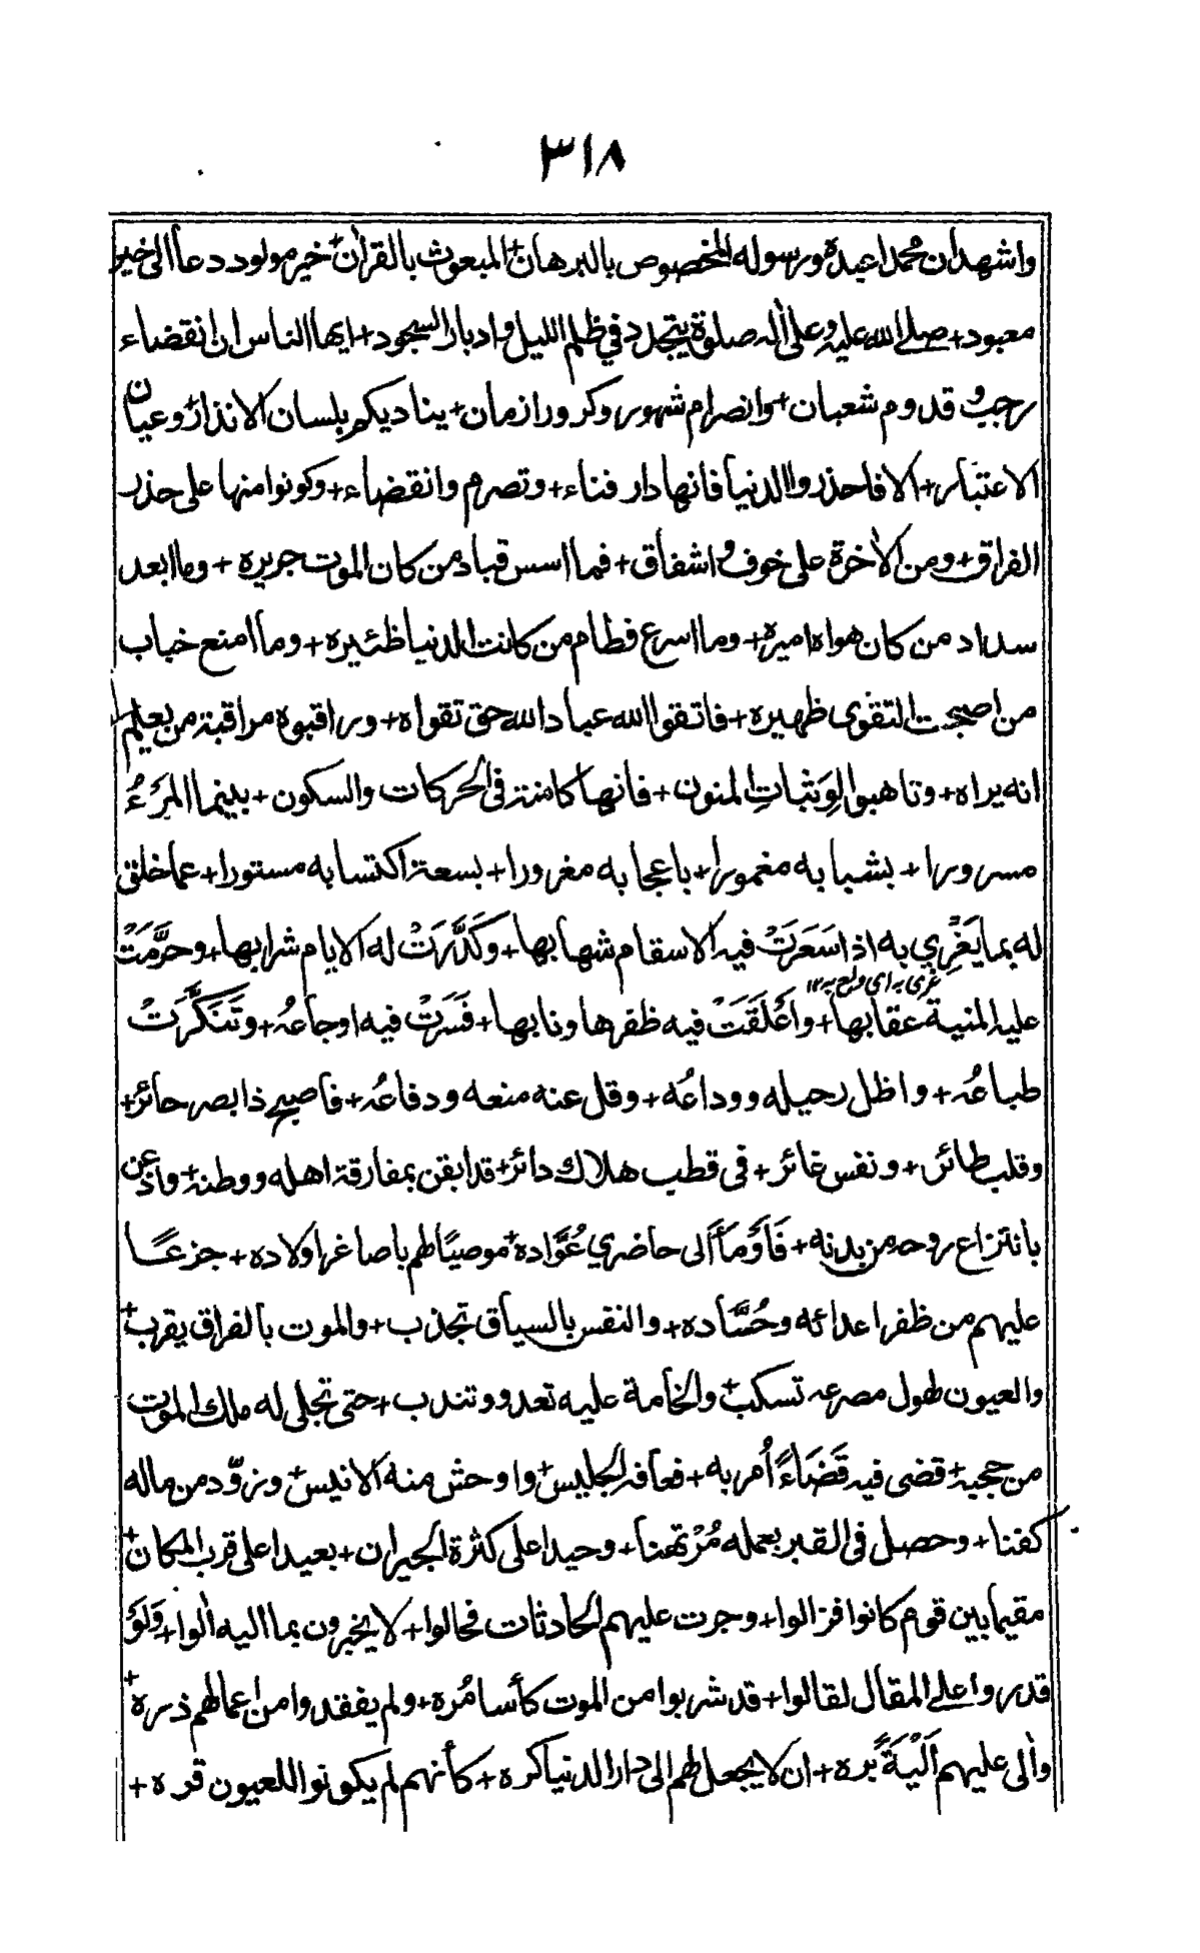 ٣١٨
واشهدان محمدا عبده ورسوله المخصوص بالبرهان+ المبعوث بالقرآن+ خير مولود دعا الى خير
معبود+ صلے الله عليه وعلى اٰله صلوة يتجدد في ظلم الليل وادبار السجود+ ايها الناس ان انقضاء
رجب وقدوم شعبان+ وانصرام شهور وكرور ازمان+ يناديكم بلسان الانذار+ وعيان
الاعتبار+ الا فاحذروا الدنيا فانها دار فناء+ وتصرم وانقضاء+ وكونوا منها على حذر
الفراق+ ومن الاٰخرة على خوف واشفاق+ فما اسس قباد من كان الموت جريره+ وما ابعد
سداد من كان هواه اميره+ وما اسرع فطام من كانت الدنيا ظئيره+ وما امنع خباب
من اصبحت التقوى ظهيره+ فاتقوا الله عباد الله حق تقواه+ وراقبوه مراقبة من يعلم
انه يراه+ وتاهبوا لِوَثباتِ المنون+ فانها كامنة فى الحركات والسكون+ بينما المَرْءُ
مسرورا+ بشبابه مغمورا+ باعجابه مغرورا+ بسعة اكتسابه مستورا+ عما خلق
له بما يَغْرِي به اذا سَعَرَتْ فيه الاسقام شهابها+ وكَدَّرَتْ له الايام شرابها+ وحوَّمَتْ
غرى به اى ولع به ١٢
عليه المنية عقابها+ واَعْلَقَتْ فيه ظفرها ونابها+ فَسَرَتْ فيه اوجاعُه+ وتَنَكَّرَتْ
طباعُه+ واظل رحيله ووداعُه+ وقل عنه منعه ودفاعُه+ فاصبح ذا بصر حائر+
وقلب طائر+ ونفس غائر+ فى قطب هلاك دائر+ قد ايقن بمفارقة اهله ووطنه+ واذعن
بانتزاع روحه من بدنه+ فَاَوْمَأَ الى حاضري عُوَّاده+ موصيًا لهم باصاغر اولاده+ جزعًا
عليهم من ظفر اعدائه وحُسَّاده+ والنفس بالسياق تجذب+ والموت بالفراق يقرب+
والعيون طول مصرعه تسكب+ والخامة عليه تعدو وتندب+ حتى تجلى له ملك الموت
من حجبه+ قضى فيه قَضَاءً اُمر به+ فعافه الجليس+ واوحش منه الانيس+ وزوّد من ماله
كفنا+ وحصل فى القبر بعمله مُرْتهنا+ وحيدا على كثرة الجيران+ بعيدا على قرب المكان+
مقيما بين قوم كانوا فزالوا+ وجرت عليهم الحادثات فحالوا+ لا يخبرون بما اليه اٰلوا+ وَلَوْ
قدروا علے المقال لقالوا+ قد شربوا من الموت كأسا مُره+ ولم يفقدوا من اعمالهم ذره+
واٰلى عليهم اَلْيَةً بره+ ان لا يجعل لهم الى دار الدنيا كره+ كأنهم لم يكونوا للعيون قره+